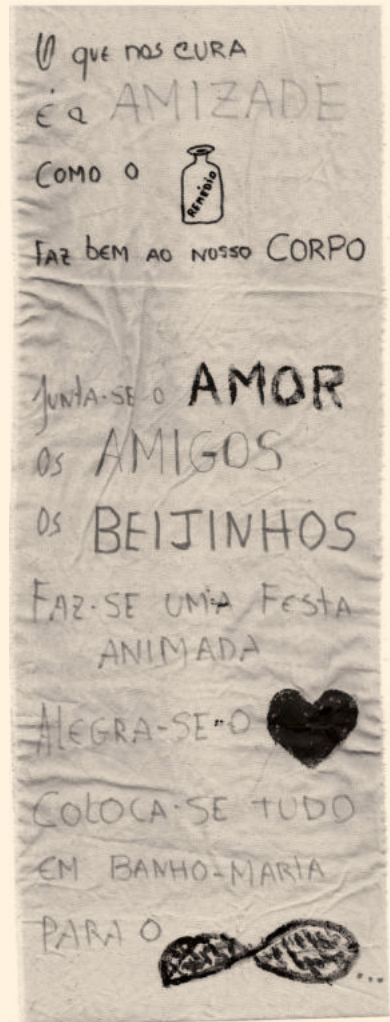 O que nos CURA
é a AMIZADE
COMO O
REMÉDIO
FAZ bEM AO NOSSO CORPO
JUNTA-SE O AMOR
OS AMIGOS
OS BEIJINHOS
FAZ-SE UMA FESTA
ANIMADA
ALEGRA-SE-O
COLOCA-SE TUDO
EM BANHO-MARIA
PARA O
...